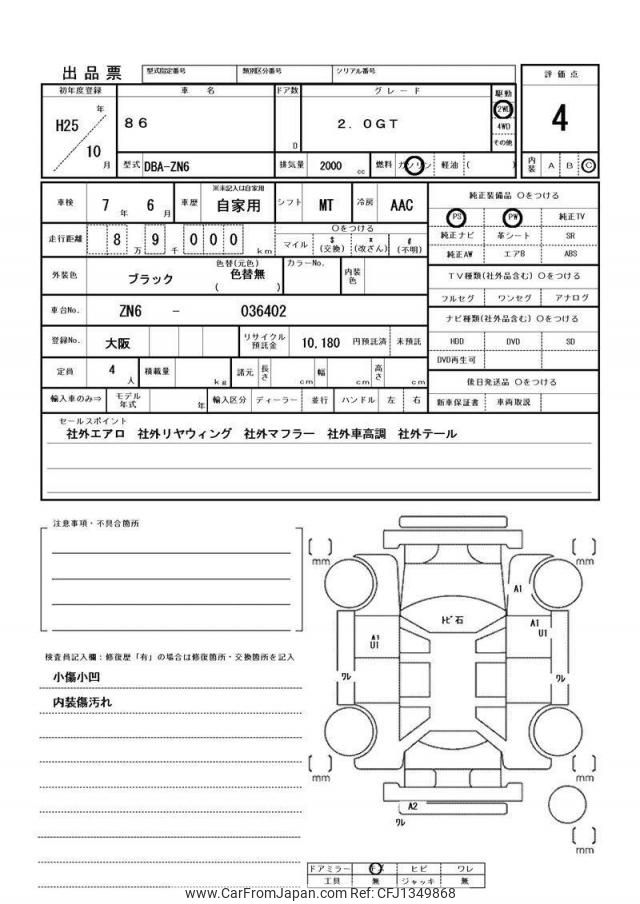 出品票
型式指定番号 類別区分番号 シリアル番号
評価点
初年度登録 車名 ドア数 グレード 駆動
H25 年 10 月
86
D
2.0GT
2WD
4WD
その他
4
型式 DBA-ZN6 排気量 2000 cc 燃料 ガソリン 軽油 ( )
内装 A B C
車検 7 年 6 月 車歴 ※未記入は自家用 自家用 シフト MT 冷房 AAC
純正装備品 〇をつける
PS PW 純正TV
純正ナビ 革シート SR
純正AW エアB ABS
走行距離 8 万 9 千 0 0 0 km
〇をつける
マイル $ (交換) * (改ざん) # (不明)
外装色 ブラック 色替(元色) 色替無 ( ) カラーNo. 内装色
TV種類(社外品含む) 〇をつける
フルセグ ワンセグ アナログ
車台No. ZN6 - 036402
ナビ種類(社外品含む) 〇をつける
HDD DVD SD
DVD再生可
登録No. 大阪 リサイクル預託金 10,180 円預託済 未預託
定員 4 人 積載量 kg 諸元 長さ cm 幅 cm 高さ cm
後日発送品 〇をつける
新車保証書 車両取説
輸入車のみ⇒ モデル年式 年 輸入区分 ディーラー 並行 ハンドル 左 右
セールスポイント
社外エアロ 社外リヤウィング 社外マフラー 社外車高調 社外テール
注意事項・不具合箇所
検査員記入欄：修復歴「有」の場合は修復箇所・交換箇所を記入
小傷小凹
内装傷汚れ
[ ] mm
[ ] mm
A1
ﾄﾋﾞ石
A1 U1
A1 U1
ﾜﾚ
ﾜﾚ
[ ] mm
[ ] mm
A2
ﾜﾚ
[ ] mm
ドアミラー キズ ヒビ ワレ
工具 無 ジャッキ 無
www.CarFromJapan.com Ref: CFJ1349868